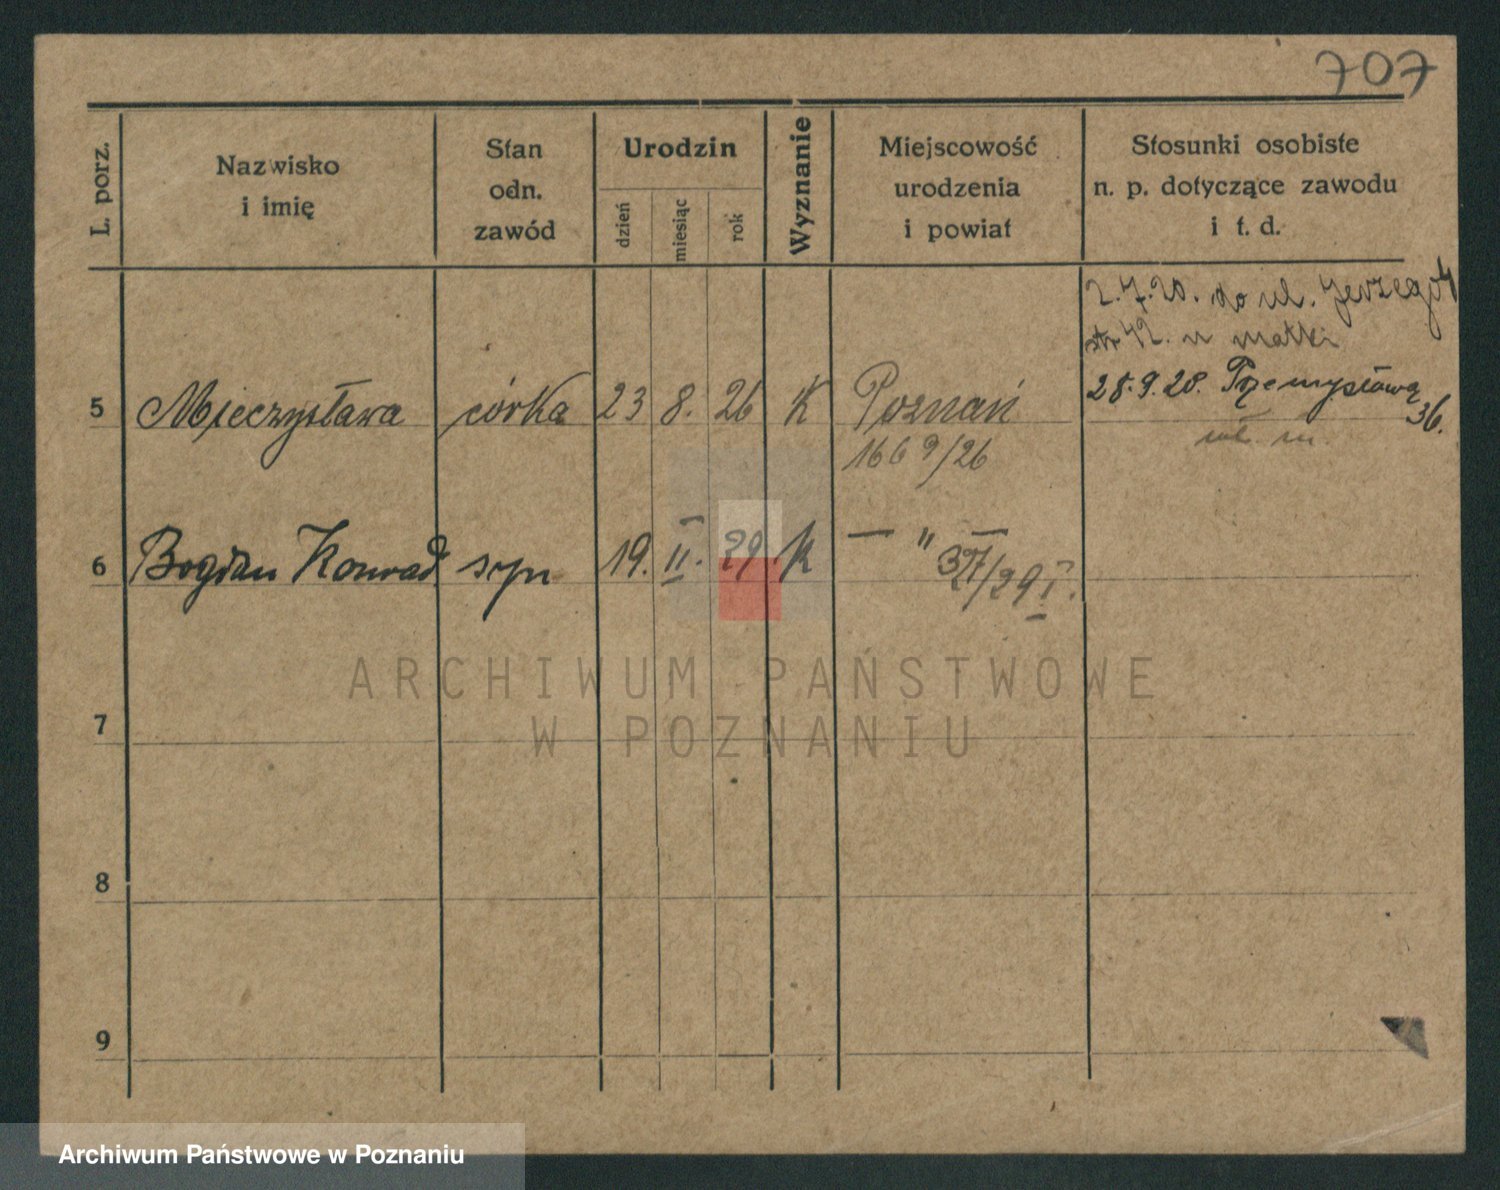 707
L. porz.
Nazwisko
i imię
Stan
odn.
zawód
Urodzin
dzień
miesiąc
rok
Wyznanie
Miejscowość
urodzenia
i powiat
Stosunki osobiste
n. p. dotyczące zawodu
i t. d.
2.7.20. do ul. Jerzego
42. u matki
5 Mieczysława córka 23 8. 26 K Poznań
28.9.20. Przemysłowa
36.
1669/26
6 Bogdan Konrad syn 19. II. 29 k — " —
37/29 I.
7
8
9
ARCHIWUM PAŃSTWOWE
W POZNANIU
Archiwum Państwowe w Poznaniu